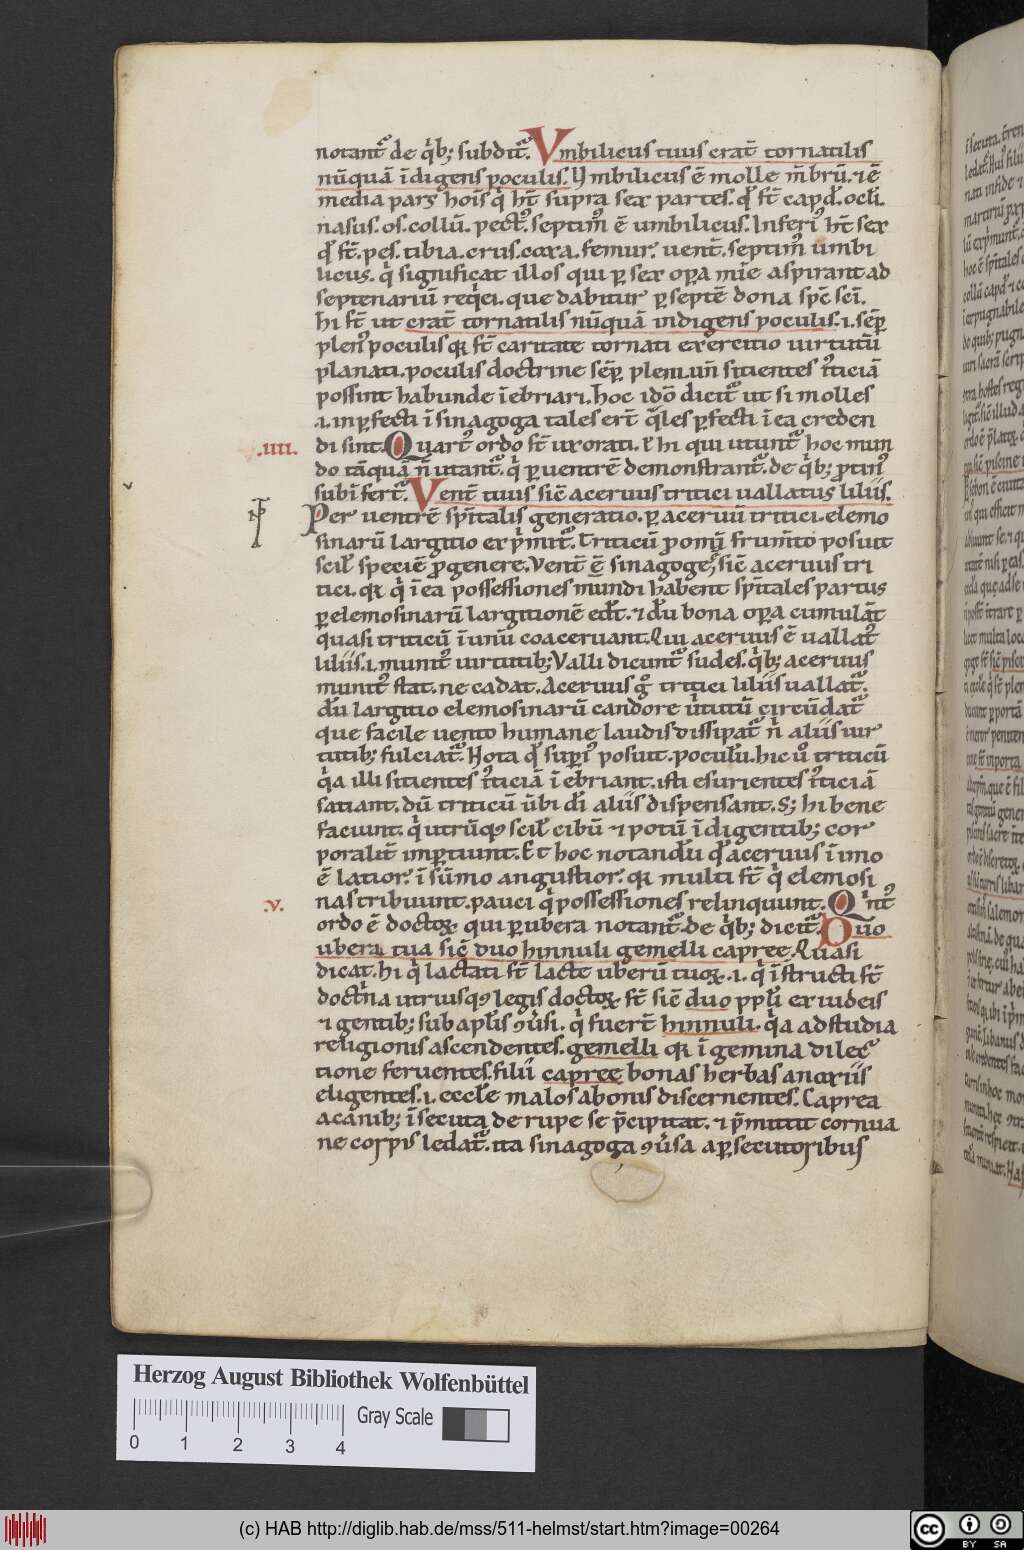 notant᷑ de q̇b; subdit᷑. Vmbilicus tuus erat̄ tornatilis
nūquā īdigens poculis. Vmbilicus ē molle m̄brū. ⁊ ē
media pars hoīs q̇ hn̄t supra sex partes. q̄ st̄ capđ. ocl̄i.
nasus. os. collū. pect᷒. septim᷒ ē umbilicus. Inferi᷒ hn̄t sex
q̄ st̄. pes. tibia. crus. coxa. femur. uent̄. septim᷒ umbi
licus. q̇ significat illos qui ꝑ sex oꝑa mīe aspirant ad
septenariū req̇ei. que dabitur ꝑ septē dona sp̄c scī.
hi st̄ ut erat̄ tornatilis nūquā indigens poculis. i. sēꝑ
plen᷒ poculis qꝛ st̄ caritate tornati exercitio uirtutū
planati. poculis doctrine sēꝑ pleni. un̄ sitientes i᷒ticiā
possint habunde īebriari. hoc idō dicit᷑ ut si molles
.i. inꝑfecti ī sinagoga tales er̄t q̄les ꝑfecti ī ea creden
.iiii. di sint. Quart᷒ ordo st̄ uxorati. ł hi qui utunt᷑ hoc mun
do tāquā n̄ utant᷑. q̇ ꝑ uentrē demonstrant᷑. de q̇b; ꝓtin᷒
subīfert᷑. Vent̄ tuus sic̄ aceruus tritici uallatus liliis.
Per uentrē sp̄italis generatio. ꝑ aceruū tritici. elemo
sinarū largitio exp̄mit᷑. Triticū ꝓ omī frum̄to posuit
scil᷒ speciē ꝓ genere. Vent̄ ē sinagoge, sic̄ aceruus tri
tici. qꝛ q̇ ī ea possessiones mundi habent sp̄itales partus
ꝑ elemosinarū largitionē edt̄. ⁊ dū bona oꝑa cumulāt
quasi triticū ī unū coaceruant. Qui aceruus ē uallat᷒
liliis. i. munit᷒ uirtutib; Valli dicunt᷑ sudes. q̇b; aceruus
munit᷒ stat. ne cadat. Aceruus g̊ tritici liliis uallat᷑.
dū largitio elemosinarū candore ūtutū circūdat᷑
que facile uento humane laudis dissipat᷑ n̄ aliis uir
tutib; fulciat᷑. Nota q̄ suꝑi᷒ posuit. poculū. hic u̇ triticū
q̇a illi sitientes i᷒ticiā īebriant. isti esurientes i᷒ticiā
satiant. dū triticū ūbi dī aliis dispensant. S; hi bene
faciunt. q̇ utrūqꝫ scil᷒ cibū ⁊ potū īdigentib; cor
poralit̄ imꝑtiunt. Et hoc notandū q̄ aceruus ī imo
ē latior. ī sūmo angustior. qꝛ multi st̄ q̇ elemosi
.v. nas tribuunt. pauci q̇ possessiones relinquunt. Qīnt᷒
ordo ē doctoꝝ. qui ꝑ ubera notant᷑. de q̇b; dicit᷑. Duo
ubera tua sic̄ duo hinnuli gemelli capree. Quasi
dicat. hi q̇ lactati st̄ lacte uberū tuoꝝ. i. q̇ īstructi st̄
doctrīa utriusqꝫ legis doctoꝝ. st̄ sic̄ duo ppl̄i ex iudeis
⁊ gentib; sub apl̄is ꝯūsi. q̇ fuer̄t hinnuli. q̇a ad studia
religionis ascendentes. gemelli qꝛ ī gemina dilec
tione feruentes. filii capree bonas herbas a noxiis
eligentes. i. eccl̄e malos a bonis discernentes. Caprea
a canib; īsecuta de rupe se p̄cipitat. ⁊ p̄mittit cornua
ne corpus ledat᷑. ita sinagoga ꝯūsa a ꝑsecutoribus
Herzog August Bibliothek Wolfenbüttel
Gray Scale
0 1 2 3 4
(c) HAB http://diglib.hab.de/mss/511-helmst/start.htm?image=00264
cc BY SA